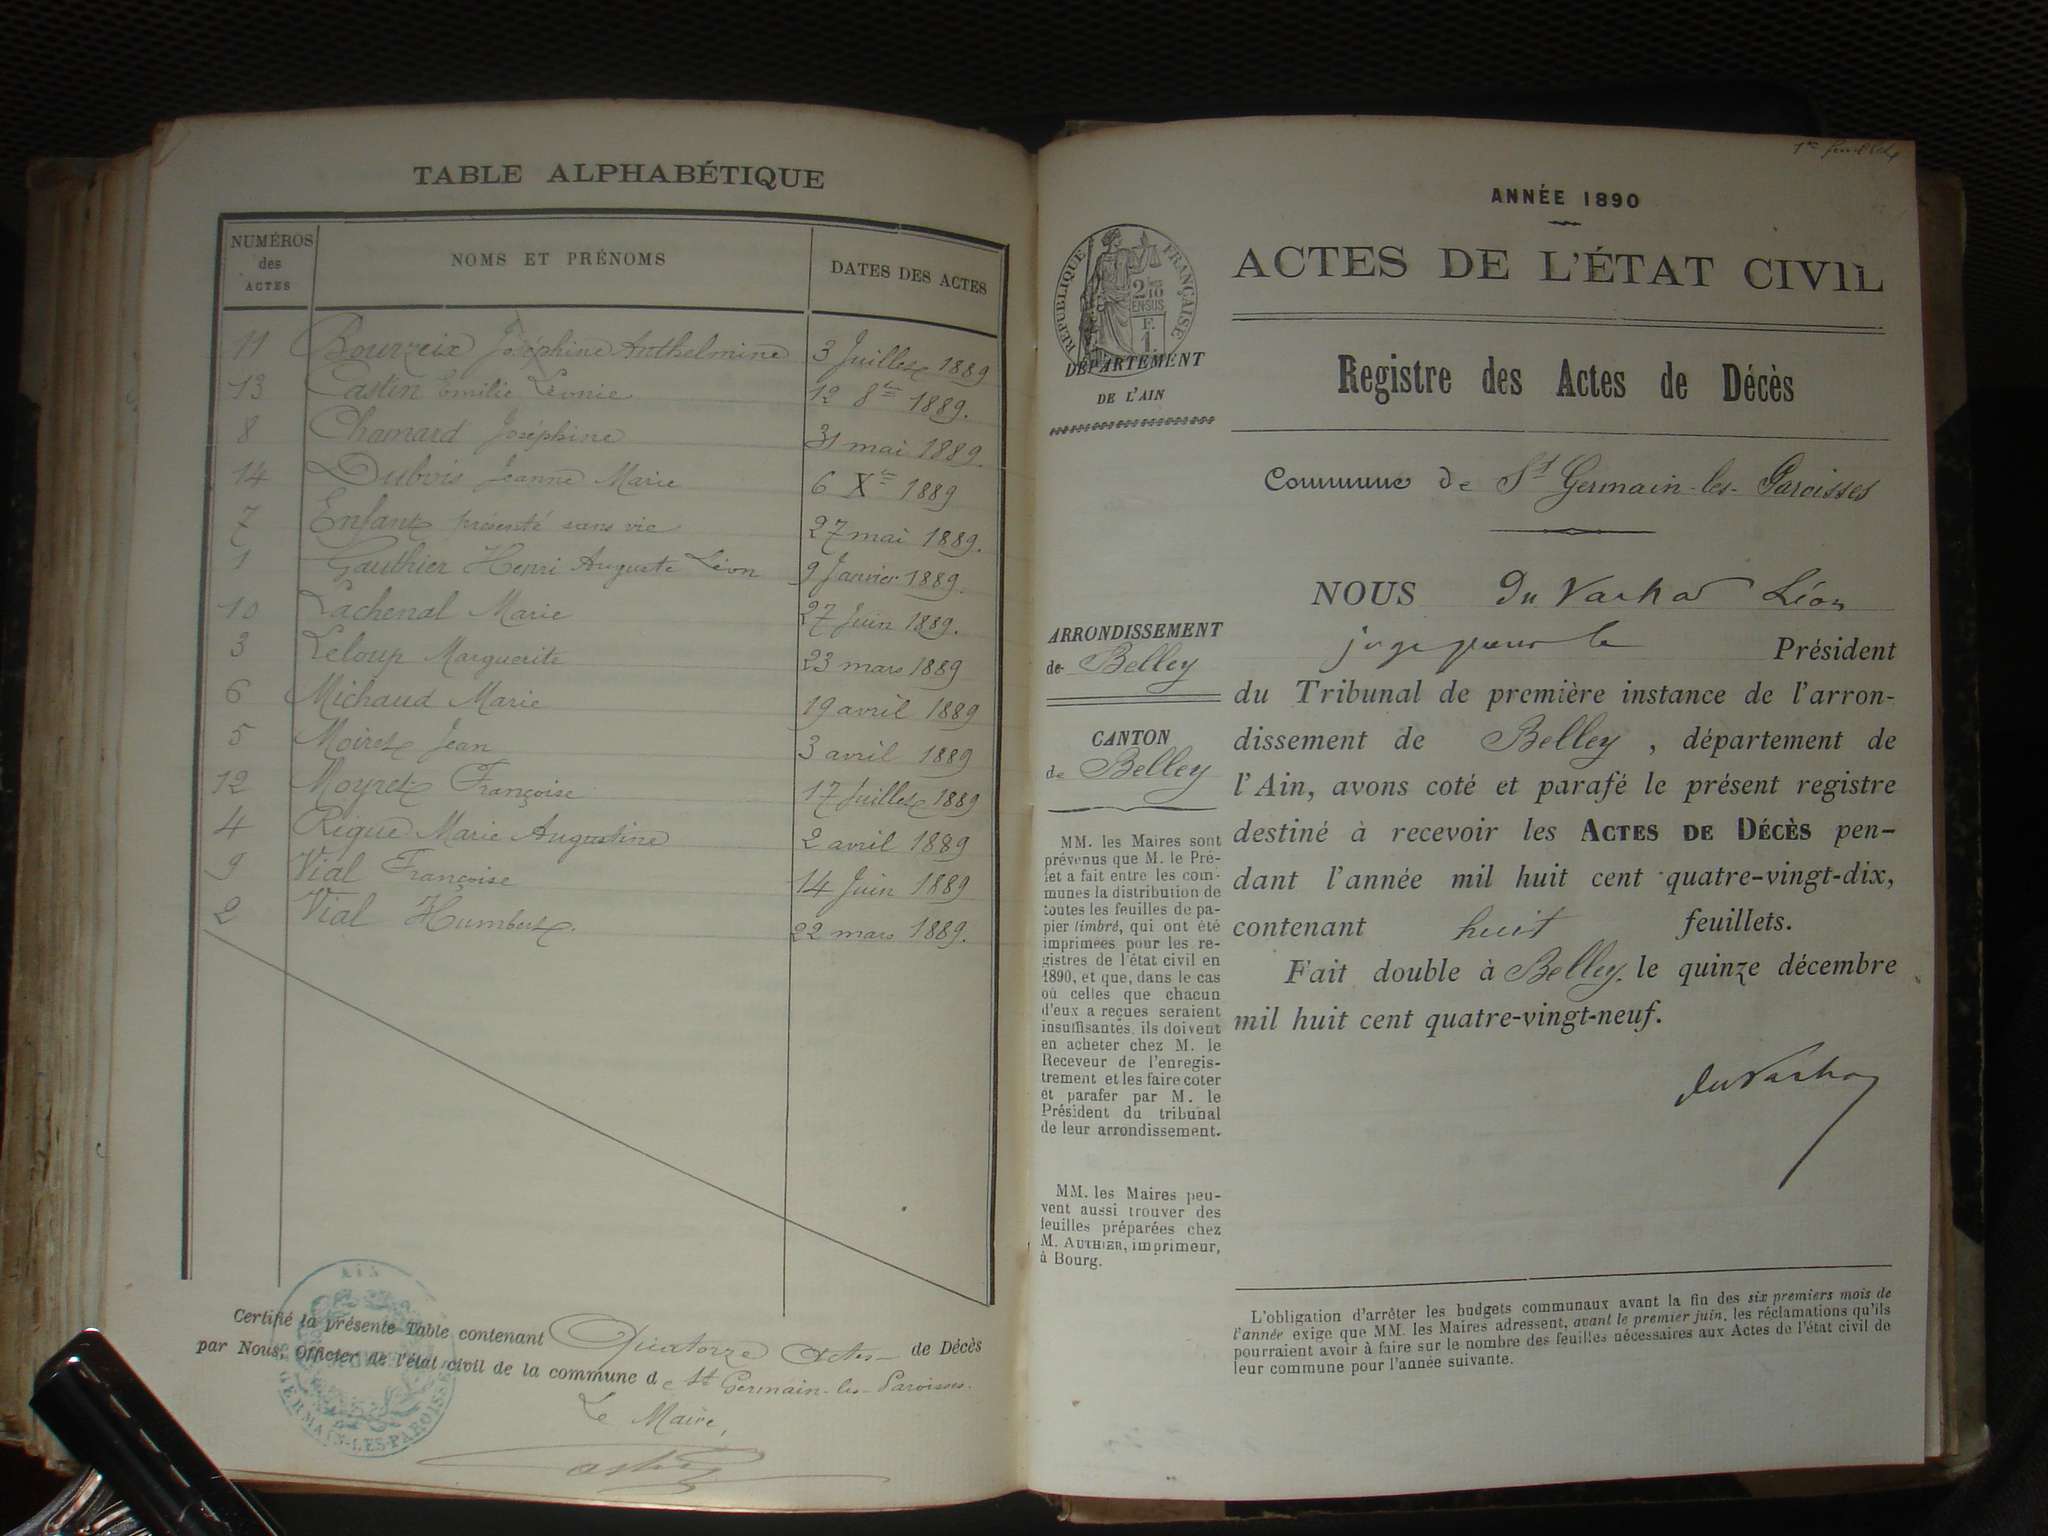 TABLE ALPHABÉTIQUE
NUMÉROS des ACTES
NOMS ET PRÉNOMS
DATES DES ACTES
11 Bourzeix Joséphine Anthelmine 3 Juillet 1889
13 Castin Emilie Léonie 12 8bre 1889.
8 Chamard Joséphine 31 mai 1889.
14 Dubois Jeanne Marie 6 Xbre 1889
7 Enfant présenté sans vie 27 mai 1889.
1 Gauthier Henri Auguste Léon 9 Janvier 1889.
10 Lachenal Marie 27 Juin 1889.
3 Leloup Marguerite 23 mars 1889
6 Michaud Marie 19 avril 1889
5 Moiret Jean 3 avril 1889
12 Moyret Françoise 17 Juillet 1889
4 Rigue Marie Augustine 2 avril 1889
9 Vial Françoise 14 Juin 1889
2 Vial Humbert. 22 mars 1889.
Certifié la présente Table contenant Quatorze Actes de Décès
par Nous, Officier de l'état civil de la commune de St Germain-les-Paroisses.
Le Maire,
AIN
GERMAIN-LES-PAROISSES
ANNÉE 1890
ACTES DE L'ÉTAT CIVIL
RÉPUBLIQUE FRANÇAISE
2/10 EN SUS
F. 1
DÉPARTEMENT
DE L'AIN
Registre des Actes de Décès
Commune de St Germain-les-Paroisses
ARRONDISSEMENT
de Belley
CANTON
de Belley
MM. les Maires sont
prévenus que M. le Pré-
fet a fait entre les com-
munes la distribution de
toutes les feuilles de pa-
pier timbré, qui ont été
imprimées pour les re-
gistres de l'état civil en
1890, et que, dans le cas
où celles que chacun
d'eux a reçues seraient
insuffisantes, ils doivent
en acheter chez M. le
Receveur de l'enregis-
trement et les faire coter
et parafer par M. le
Président du tribunal
de leur arrondissement.
MM. les Maires peu-
vent aussi trouver des
feuilles préparées chez
M. AUTHIER, imprimeur,
à Bourg.
NOUS Léon
juge pour le Président
du Tribunal de première instance de l'arron-
dissement de Belley, département de
l'Ain, avons coté et parafé le présent registre
destiné à recevoir les ACTES DE DÉCÈS pen-
dant l'année mil huit cent quatre-vingt-dix,
contenant huit feuillets.
Fait double à Belley, le quinze décembre
mil huit cent quatre-vingt-neuf.
L'obligation d'arrêter les budgets communaux avant la fin des six premiers mois de
l'année exige que MM. les Maires adressent, avant le premier juin, les réclamations qu'ils
pourraient avoir à faire sur le nombre des feuilles nécessaires aux Actes de l'état civil de
leur commune pour l'année suivante.